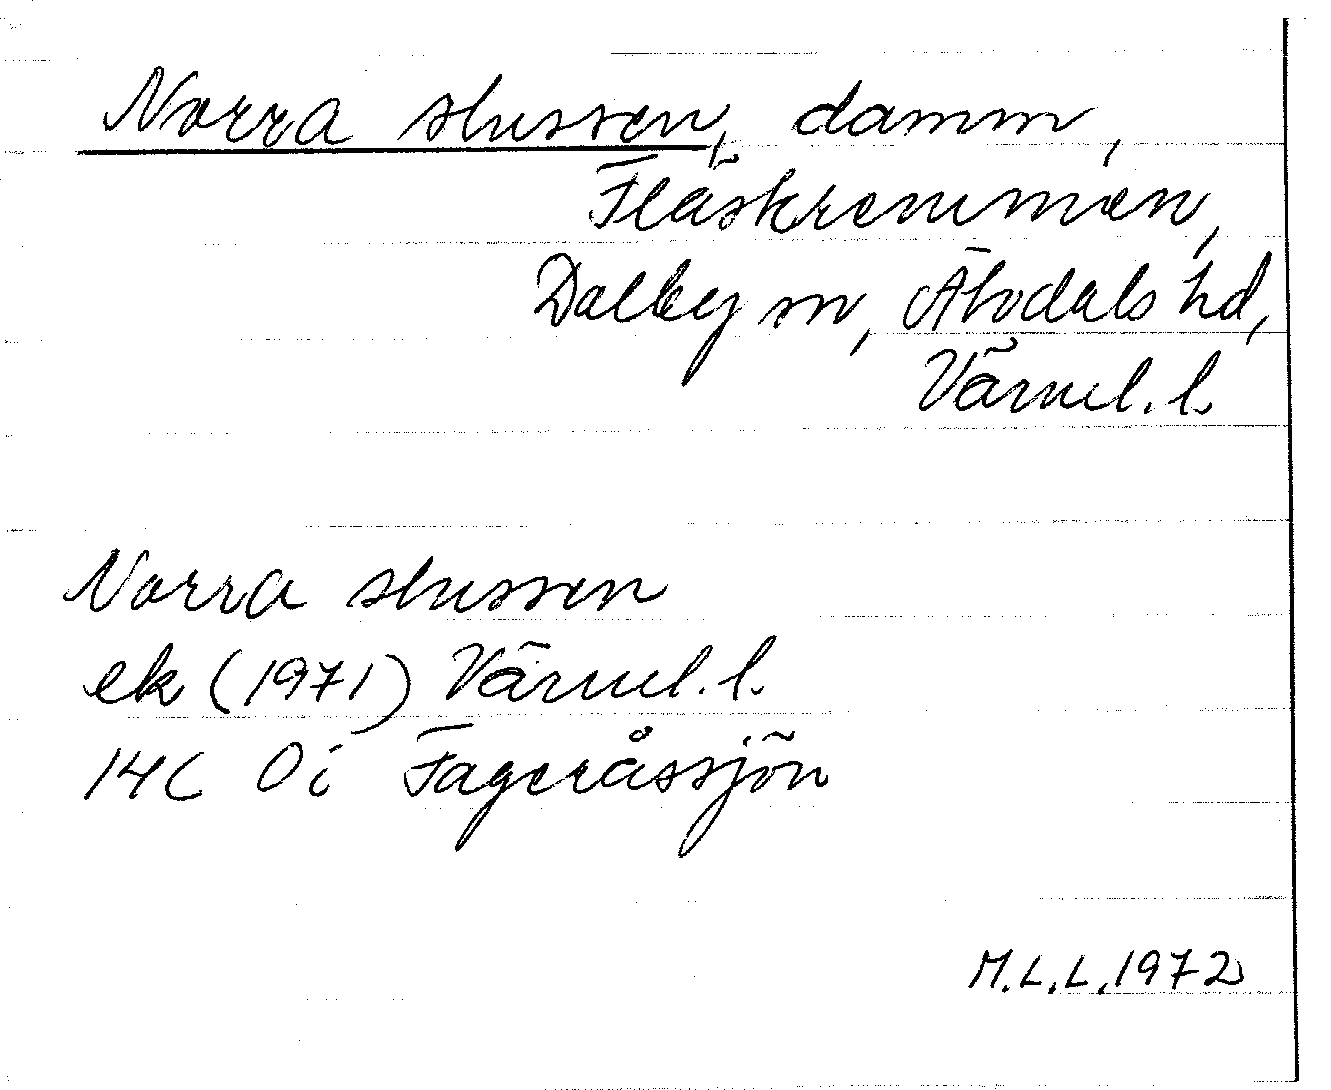 Norra slussen, damm,
Fläskremmen,
Dalby sn, Älvdals hd,
Värml. l.
Norra slussen
ek (1971) Värml. l.
14C 0i Fageråssjön
M.L.L. 1972